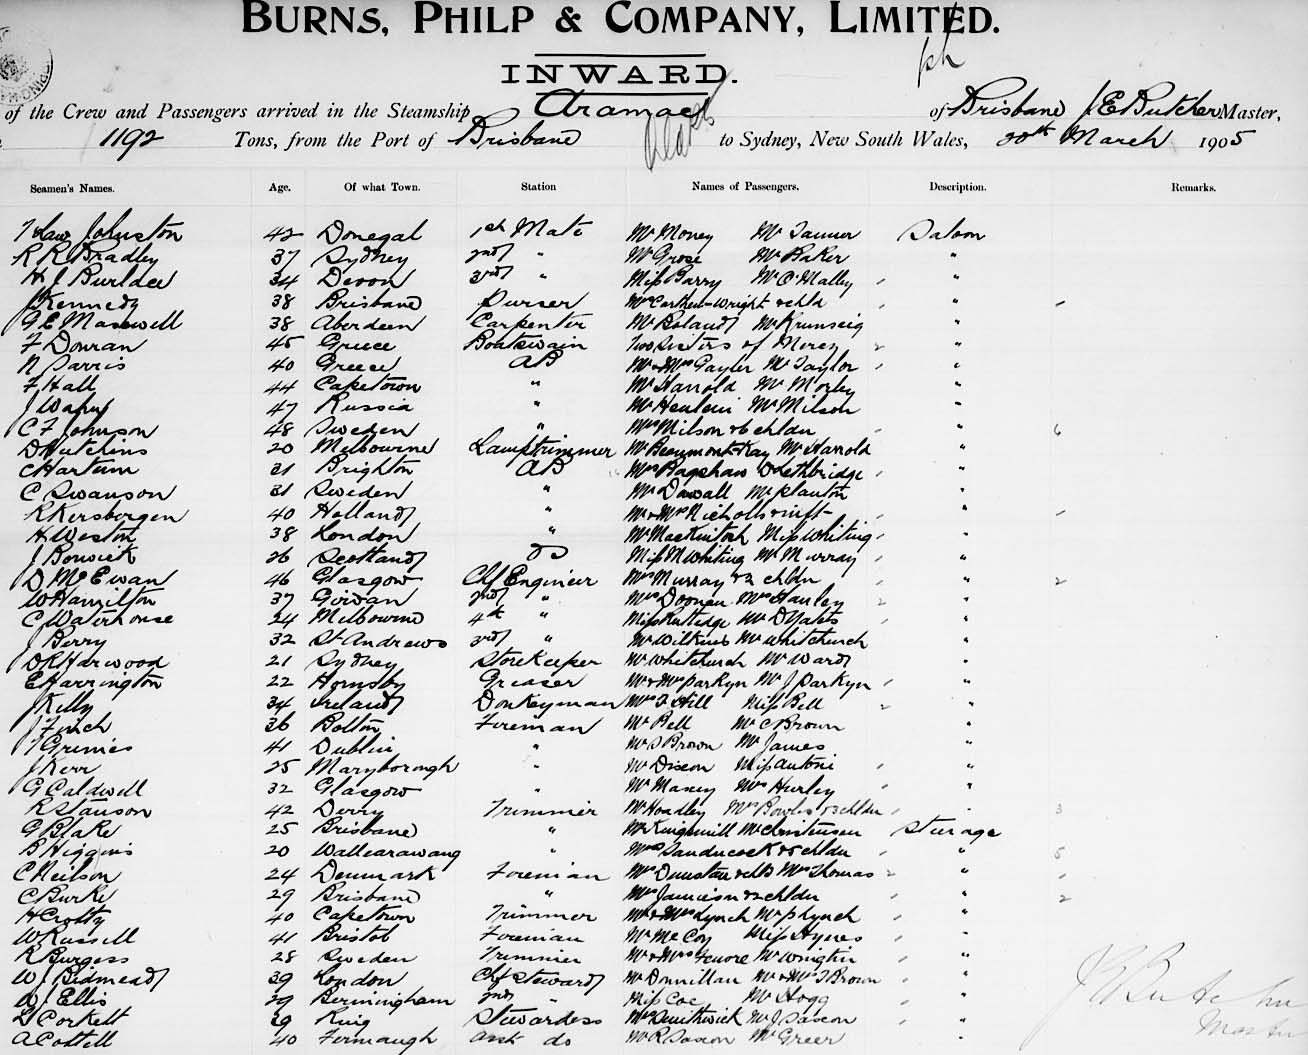 BURNS, PHILP & COMPANY, LIMITED.
INWARD.
of the Crew and Passengers arrived in the Steamship Aramac of Brisbane J E Butcher Master,
1192 Tons, from the Port of Brisbane to Sydney, New South Wales, 20th March 1905
Seamen's Names. Age. Of what Town. Station Names of Passengers. Description. Remarks.
Law Johnston 42 Donegal 1st Mate Mr Money Mr Tanner Saloon
R R Bradley 37 Sydney 2nd " Mr Grose Mr Baker "
H J Burldee 34 Devon 3rd " Miss Barry Mr O'Malley "
J Kennedy 38 Brisbane Purser Wright & chld "
G C Maxwell 38 Aberdeen Carpenter Mr Boland Mr "
F Douran 45 Greece Boatswain Two Sisters of Mercy "
N Sarris 40 Greece AB Mr & Mrs Gayler Mr Taylor "
F Hall 44 Capetown " Mr Harrold Mr Morley "
J 47 Russia " Mr Mr Milson "
C F Johnson 48 Sweden " Mrs Milson & 6 chldn " 6
D Hutchins 20 Melbourne Lamptrimmer Mr Beaumont-Kay Mr Harrold "
C Hartum 21 Brighton AB Mrs Bagshaw D Lethbridge "
C Swanson 31 Sweden " Mr Mr "
R Kersbergen 40 Holland " Mr & Mrs Nicholls & inft "
H Weston 38 London " Mr Mackintosh Miss Whiting "
J Bonwick 26 Scotland OS Miss M Whiting Mr Murray "
D McEwan 46 Glasgow Chf Engineer Mrs Murray & 2 chldn " 2
W Hamilton 37 Govan 2nd " Mrs Mrs Hanley "
C Waterhouse 24 Melbourne 4th " Miss Rutledge Mr D Yates "
J Berry 32 St Andrews 3rd " Mr Wilkins Mr Whitchurch "
D R Harwood 21 Sydney Storekeeper Mr Whitchurch Mr Ward "
E Harrington 22 Hornsby Greaser Mr & Mrs Parkyn Mr J Parkyn "
J Kelly 34 Ireland Donkeyman Mrs F Hill Miss Bell "
J Finch 36 Bolton Fireman Mr Bell Mr C Brown "
T Grimes 41 Dublin " Mr S Brown Mr James "
J Kerr 25 Maryborough " Mr Dixon Miss Antoni "
G Caldwell 32 Glasgow " Mr Massey Mrs Hurley "
R Stanson 42 Derry Trimmer Mr Hoadley Mrs Bowles & 3 chldn " 3
G Blake 25 Brisbane " Mr Kingsmill Mr Christensen Steerage
B Higgins 20 Wallearawang " Mrs Sandercock & 5 chldn " 5
C Neilson 24 Denmark Fireman Mrs Dunstan & chld Mrs Thomas "
C Burke 29 Brisbane " Mrs Jamieson & 2 chldn " 2
H Crotty 40 Capetown Trimmer Mr & Mrs Lynch Mr P Lynch "
W Russell 41 Bristol Fireman Mr McCoy Miss Hynes "
R Burgess 28 Sweden Trimmer Mr & Mrs Mr "
W J Bidmead 39 London Chf Steward Mr Donnillan Mr & Mrs T Brown "
W J Ellis 29 Bermingham 2nd " Miss Coe Mr Hogg "
L Corkett 29 King Stewardess Mrs Smithwick Mr J Saxon "
A Cottell 40 Fermaugh asst do Mr R Saxon Mr Greer "
J E Butcher
Master